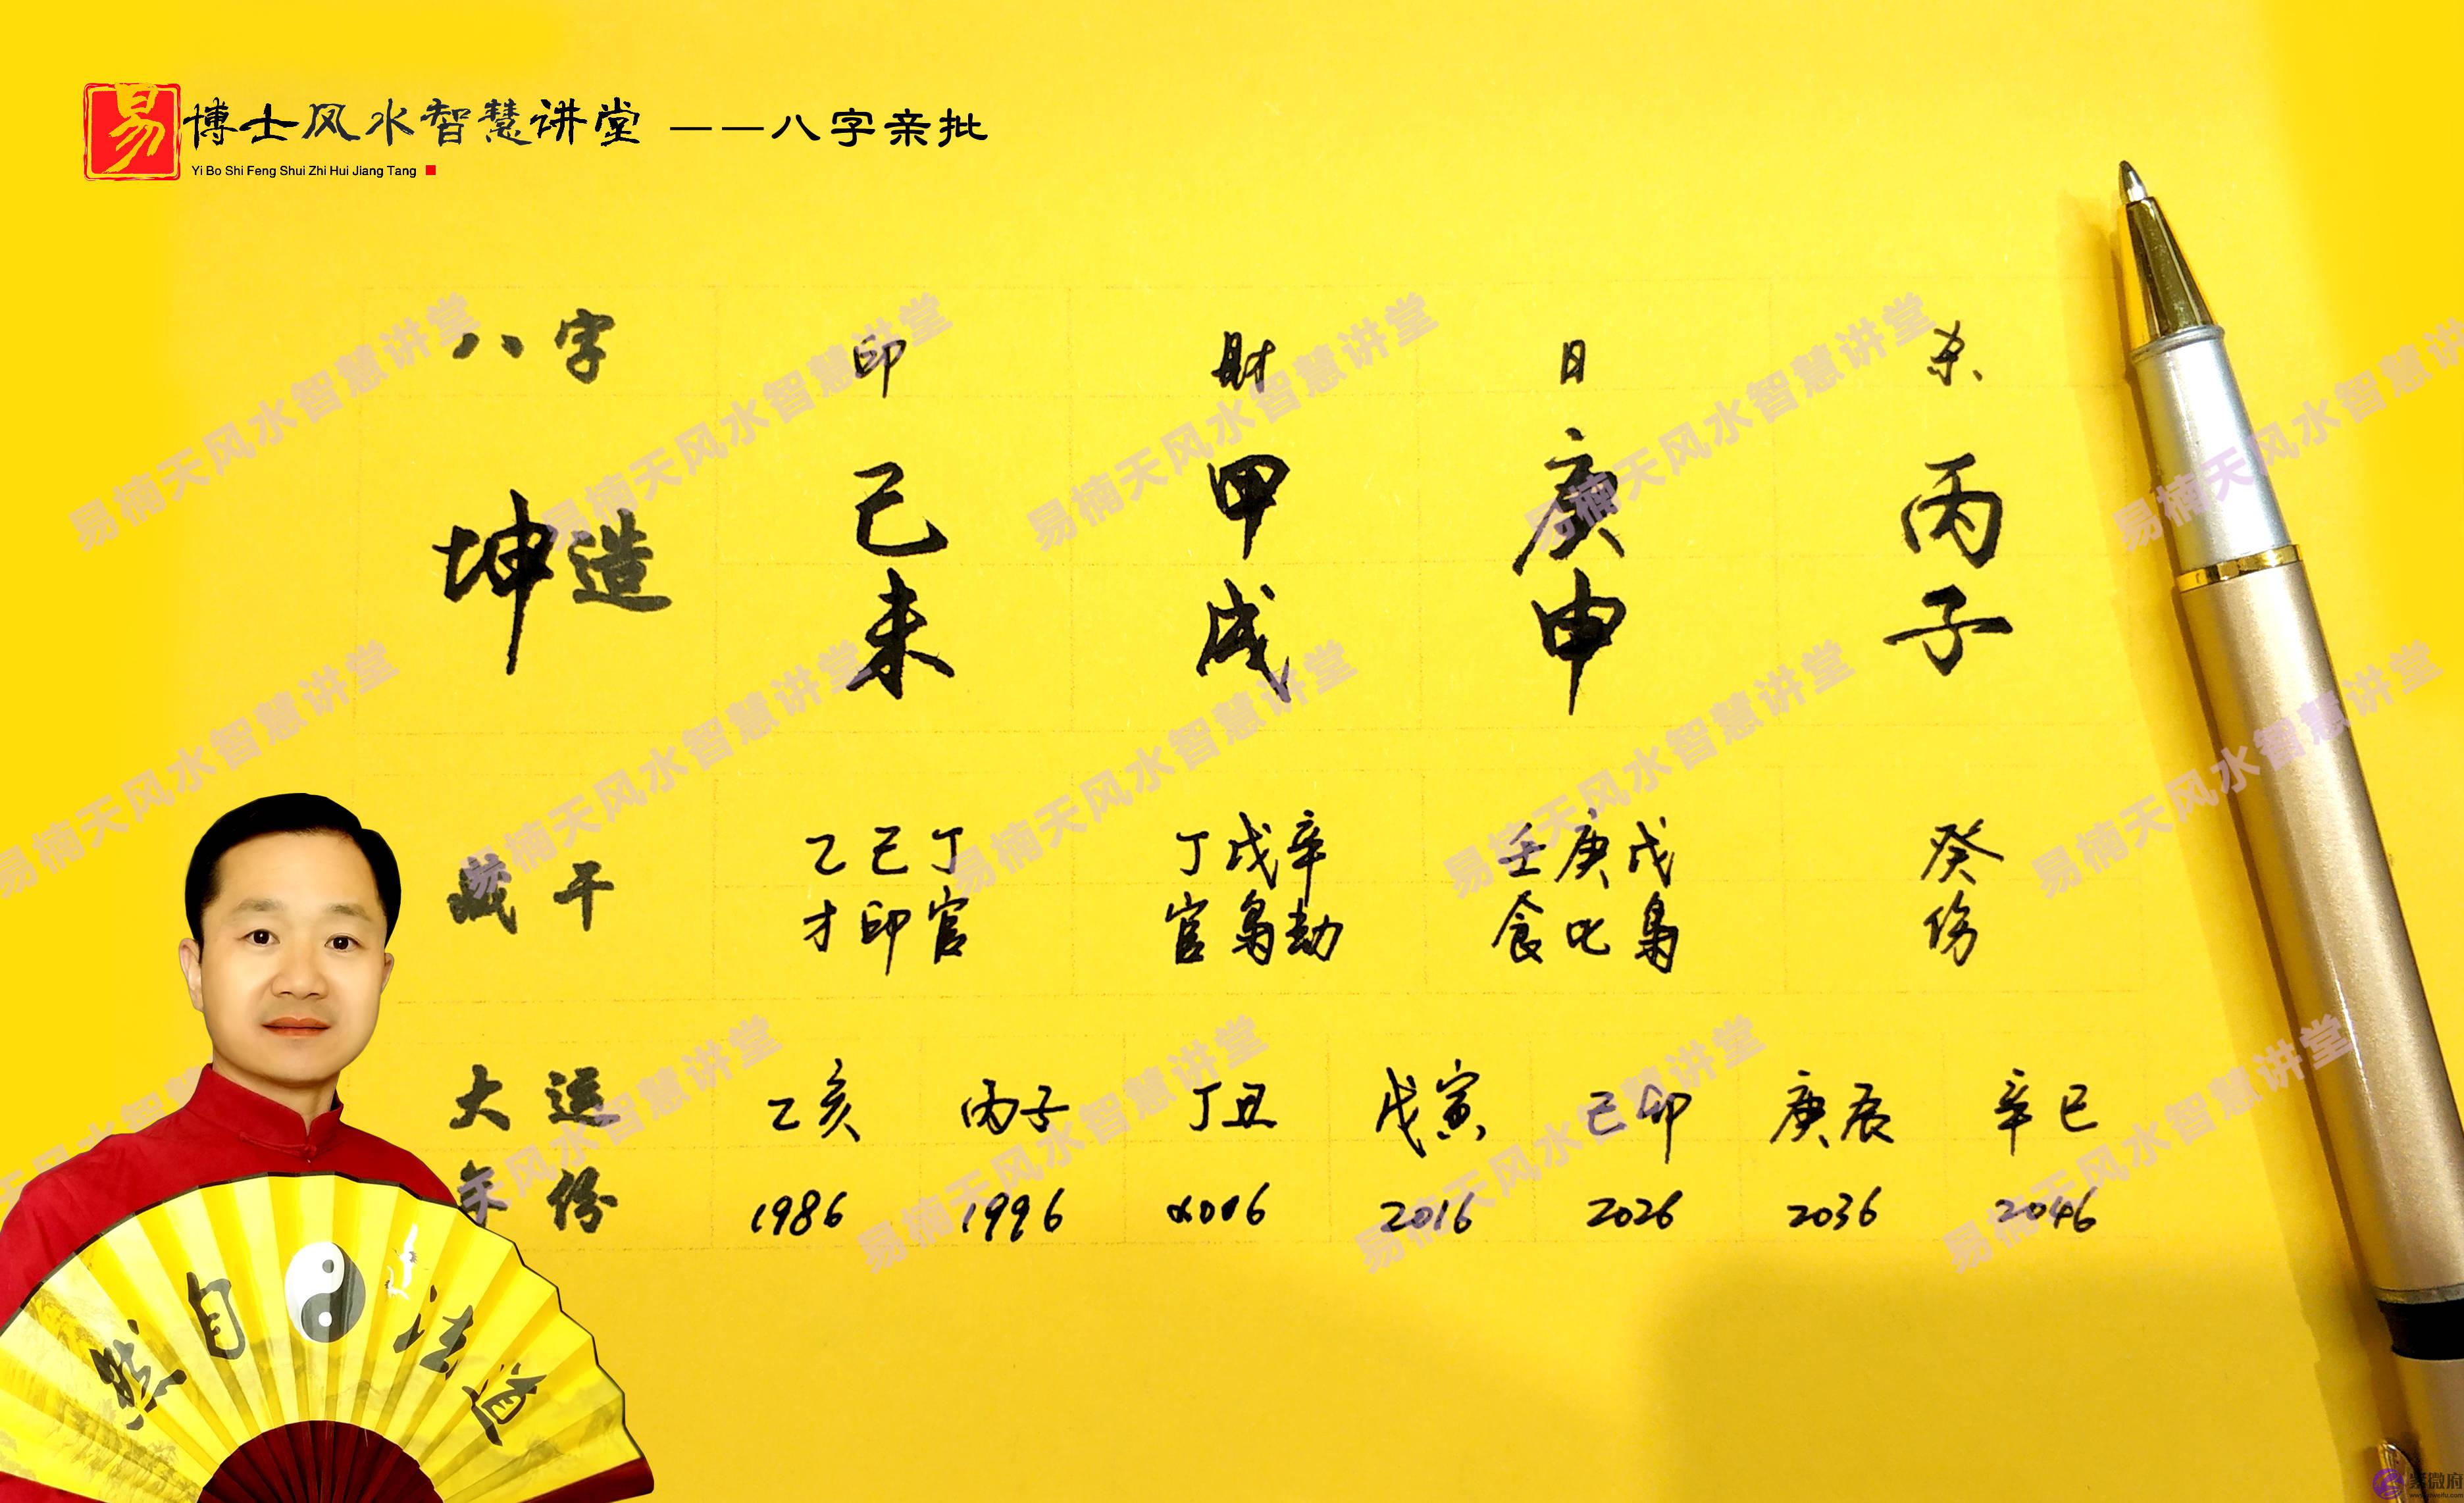 易博士风水智慧讲堂 ——八字亲批
Yi Bo Shi Feng Shui Zhi Hui Jiang Tang
八字 印 财 日 杀
坤造 己未 甲戌 庚申 丙子
藏干 乙己丁 丁戊辛 壬庚戊 癸
才印官 官枭劫 食比枭 伤
大运 乙亥 丙子 丁丑 戊寅 己卯 庚辰 辛巳
年份 1986 1996 2006 2016 2026 2036 2046
道法自然
易楠天风水智慧讲堂
紫微府